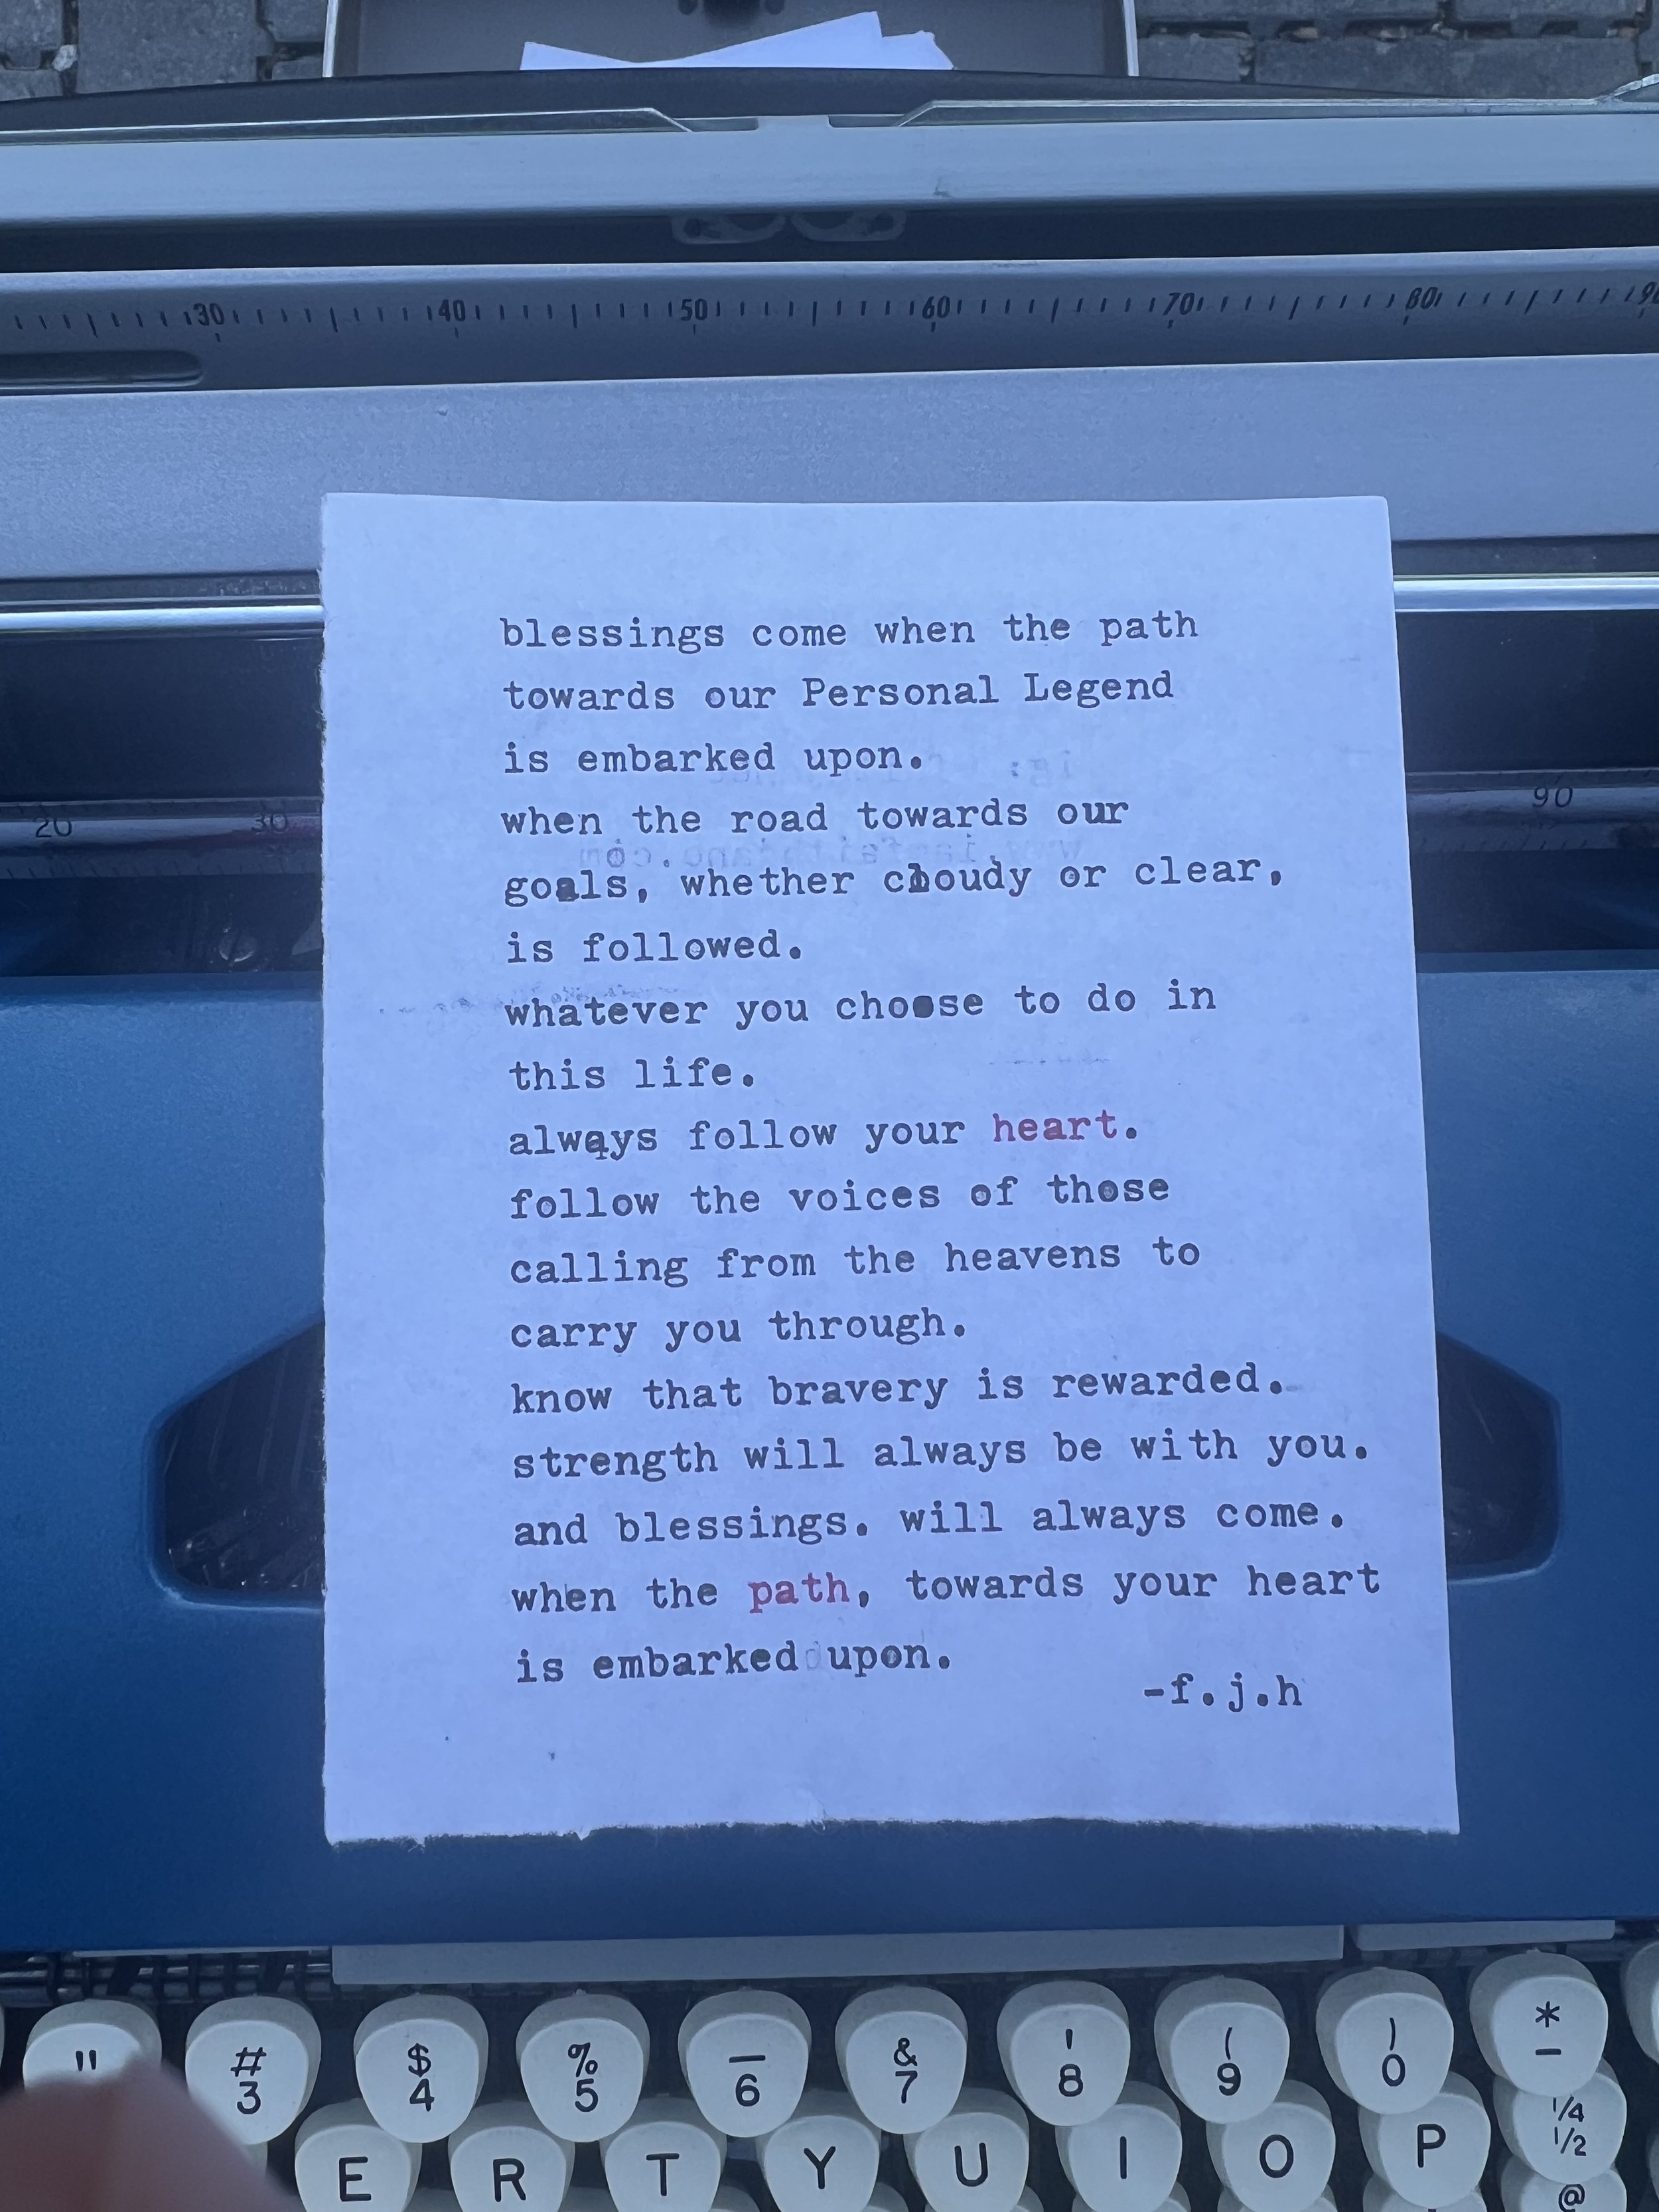 30 40 50 60 70 80
20 30 90
blessings come when the path
towards our Personal Legend
is embarked upon.
when the road towards our
goals, whether cloudy or clear,
is followed.
whatever you choose to do in
this life.
always follow your heart.
follow the voices of those
calling from the heavens to
carry you through.
know that bravery is rewarded.
strength will always be with you.
and blessings. will always come.
when the path, towards your heart
is embarked upon.
-f.j.h
" # $ % _ & ' ( ) *
3 4 5 6 7 8 9 0 -
¼
½
E R T Y U I O P
@